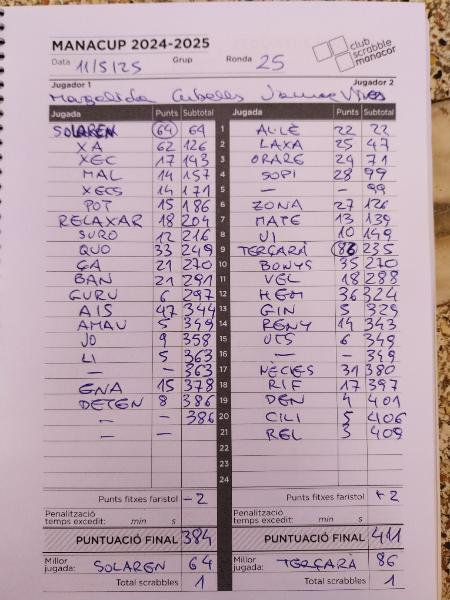 MANACUP 2024-2025
club scrabble manacor
Data 11/5/25 Grup Ronda 25
Jugador 1 Jugador 2
Margalida Cubells Jaume Vives
Jugada Punts Subtotal Jugada Punts Subtotal
SOLAREN 64 64 1 AL·LÈ 22 22
XA 62 126 2 LAXA 25 47
XEC 17 143 3 ORARE 24 71
MAL 14 157 4 SOPI 28 99
XECS 14 171 5 — — 99
POT 15 186 6 ZONA 27 126
RELAXAR 18 204 7 MATE 13 139
SURO 12 216 8 VI 10 149
QUO 33 249 9 TERÇARÀ 86 235
GA 21 270 10 BONYS 35 270
BAN 21 291 11 VEL 18 288
GURU 6 297 12 HEM 36 324
AIS 47 344 13 GIN 5 329
AMAU 5 349 14 RENY 14 343
JO 9 358 15 UTS 6 349
LI 5 363 16 — — 349
— — 363 17 NÈCIES 31 380
GNA 15 378 18 RIF 17 397
DETEN 8 386 19 DEN 4 401
— — 386 20 CILI 5 406
— — 21 REL 3 409
22
23
24
Punts fitxes faristol -2 Punts fitxes faristol +2
Penalització temps excedit: min s Penalització temps excedit: min s
PUNTUACIÓ FINAL 384 PUNTUACIÓ FINAL 411
Millor jugada: SOLAREN 64 Millor jugada: TERÇARÀ 86
Total scrabbles 1 Total scrabbles 1